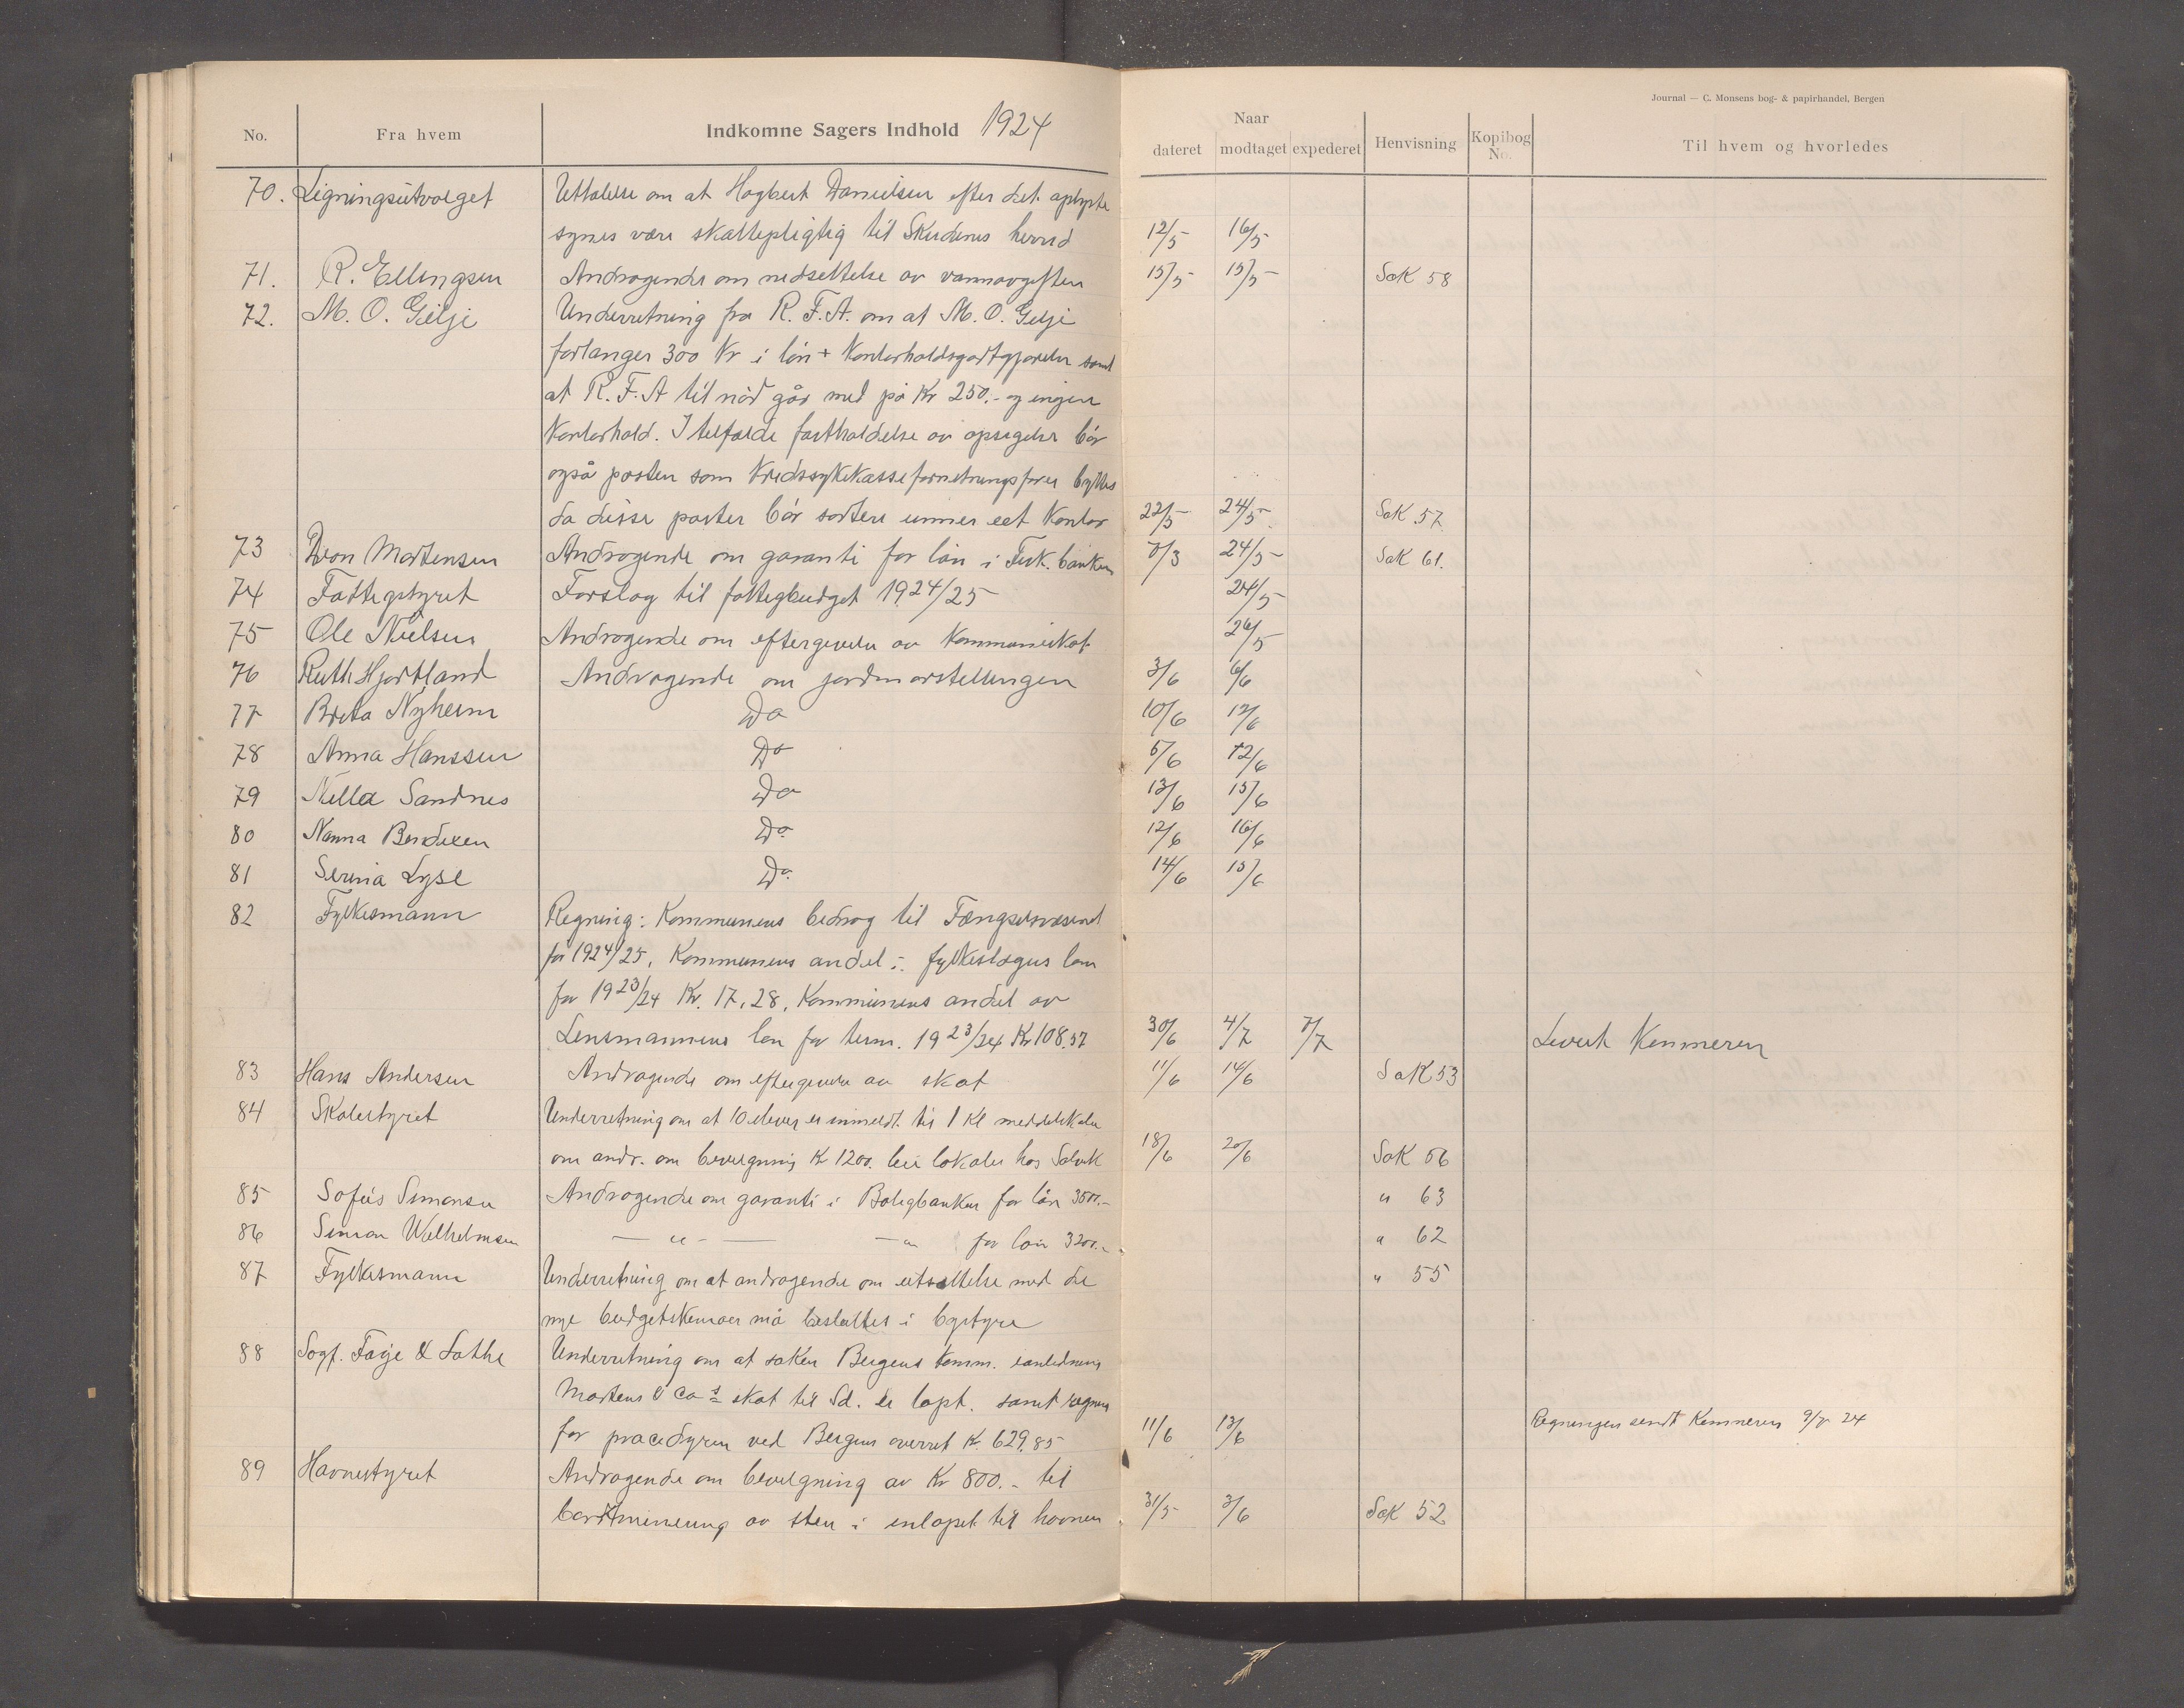 Journal — C. Monsens bog- & papirhandel, Bergen
No. Fra hvem Indkomne Sagers Indhold 1924 Naar dateret modtaget expederet Henvisning Kopibog No. Til hvem og hvorledes
70. Ligningsutvalget Uttalelse om at Hagbert Danielsen efter det oplyste
synes være skattepligtig til Skudenes herred 12/5 16/5
71. R. Ellingsen Andragende om nedsettelse av vannavgiften 15/5 15/5 Sak 58
72. M. O. Gilje Underretning fra R. F. A. om at M. O. Gilje
forlanger 300 Kr i løn + Kontorholdsgodtgjørelse samt
at R. F. A til nød går med på Kr 250.- og ingen
Kontorhold. I tilfælde fastholdelse av opsigelse bør
også posten som Kredssykekasseforretningsfører byttes
da disse poster bør sortere unner eet Kontor 22/5 24/5 Sak 57
73 Deon Martensen Andragende om garanti for lån i Fisk. banken 7/3 24/5 Sak 61.
74 Fattigstyret Forslag til fattigbudget 1924/25 24/5
75 Ole Nielsen Andragende om eftergivelse av Kommuneskat 26/5
76 Ruth Hjortland Andragende om jordmorstellingen 3/6 6/6
77 Brita Nyheim Do 10/6 12/6
78 Anna Hanssen Do 5/6 12/6
79 Nella Sandnes Do 13/6 15/6
80 Nanna Bendixen Do 12/6 16/6
81 Serina Lyse Do 14/6 15/6
82 Fylkesmann Regning: Kommunens bedrag til Fængselsvæsend
for 1924/25, Kommunens andel i fylkeslægens løn
for 1923/24 Kr. 17,28, Kommunens andel av
Lensmannens løn for term. 1923/24 Kr 108.57 30/6 4/7 7/7 Levert Kemneren
83 Hans Andersen Andragende om eftergivelse av skat 11/6 14/6 Sak 53
84 Skolestyret Underretning om at 10 elever er inmeldt til 1 Kl middelskolen
om andr. om bevilgning Kr 1200. leie lokaler hos Solvik 18/6 20/6 Sak 56
85 Sofus Simonsen Andragende om garanti i Boligbanken for lån 3500.- " 63
86 Simon Wilhelmsen — " — — " for lån 3200.- " 62
87 Fylkesmann Underretning om at andragende om utsættelse med de " 55
nye budgetskemaer må besluttes i bystyre
88 Sagf. Faye & Lothe Underretning om at saken Bergens Komm. i anledning
Martens & Co s skat til Sd. er tapt. samt regning
for procedyren ved Bergens overret Kr. 629.85 11/6 13/6 Regningen sendt Kemneren 9/7 24
89 Havnestyret Andragende om bevilgning av Kr 800.- til
bortminering av sten i inløpet til havnen 31/5 3/6 Sak 52